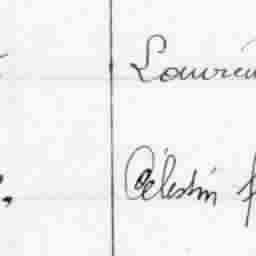 Lauren
Célestin f